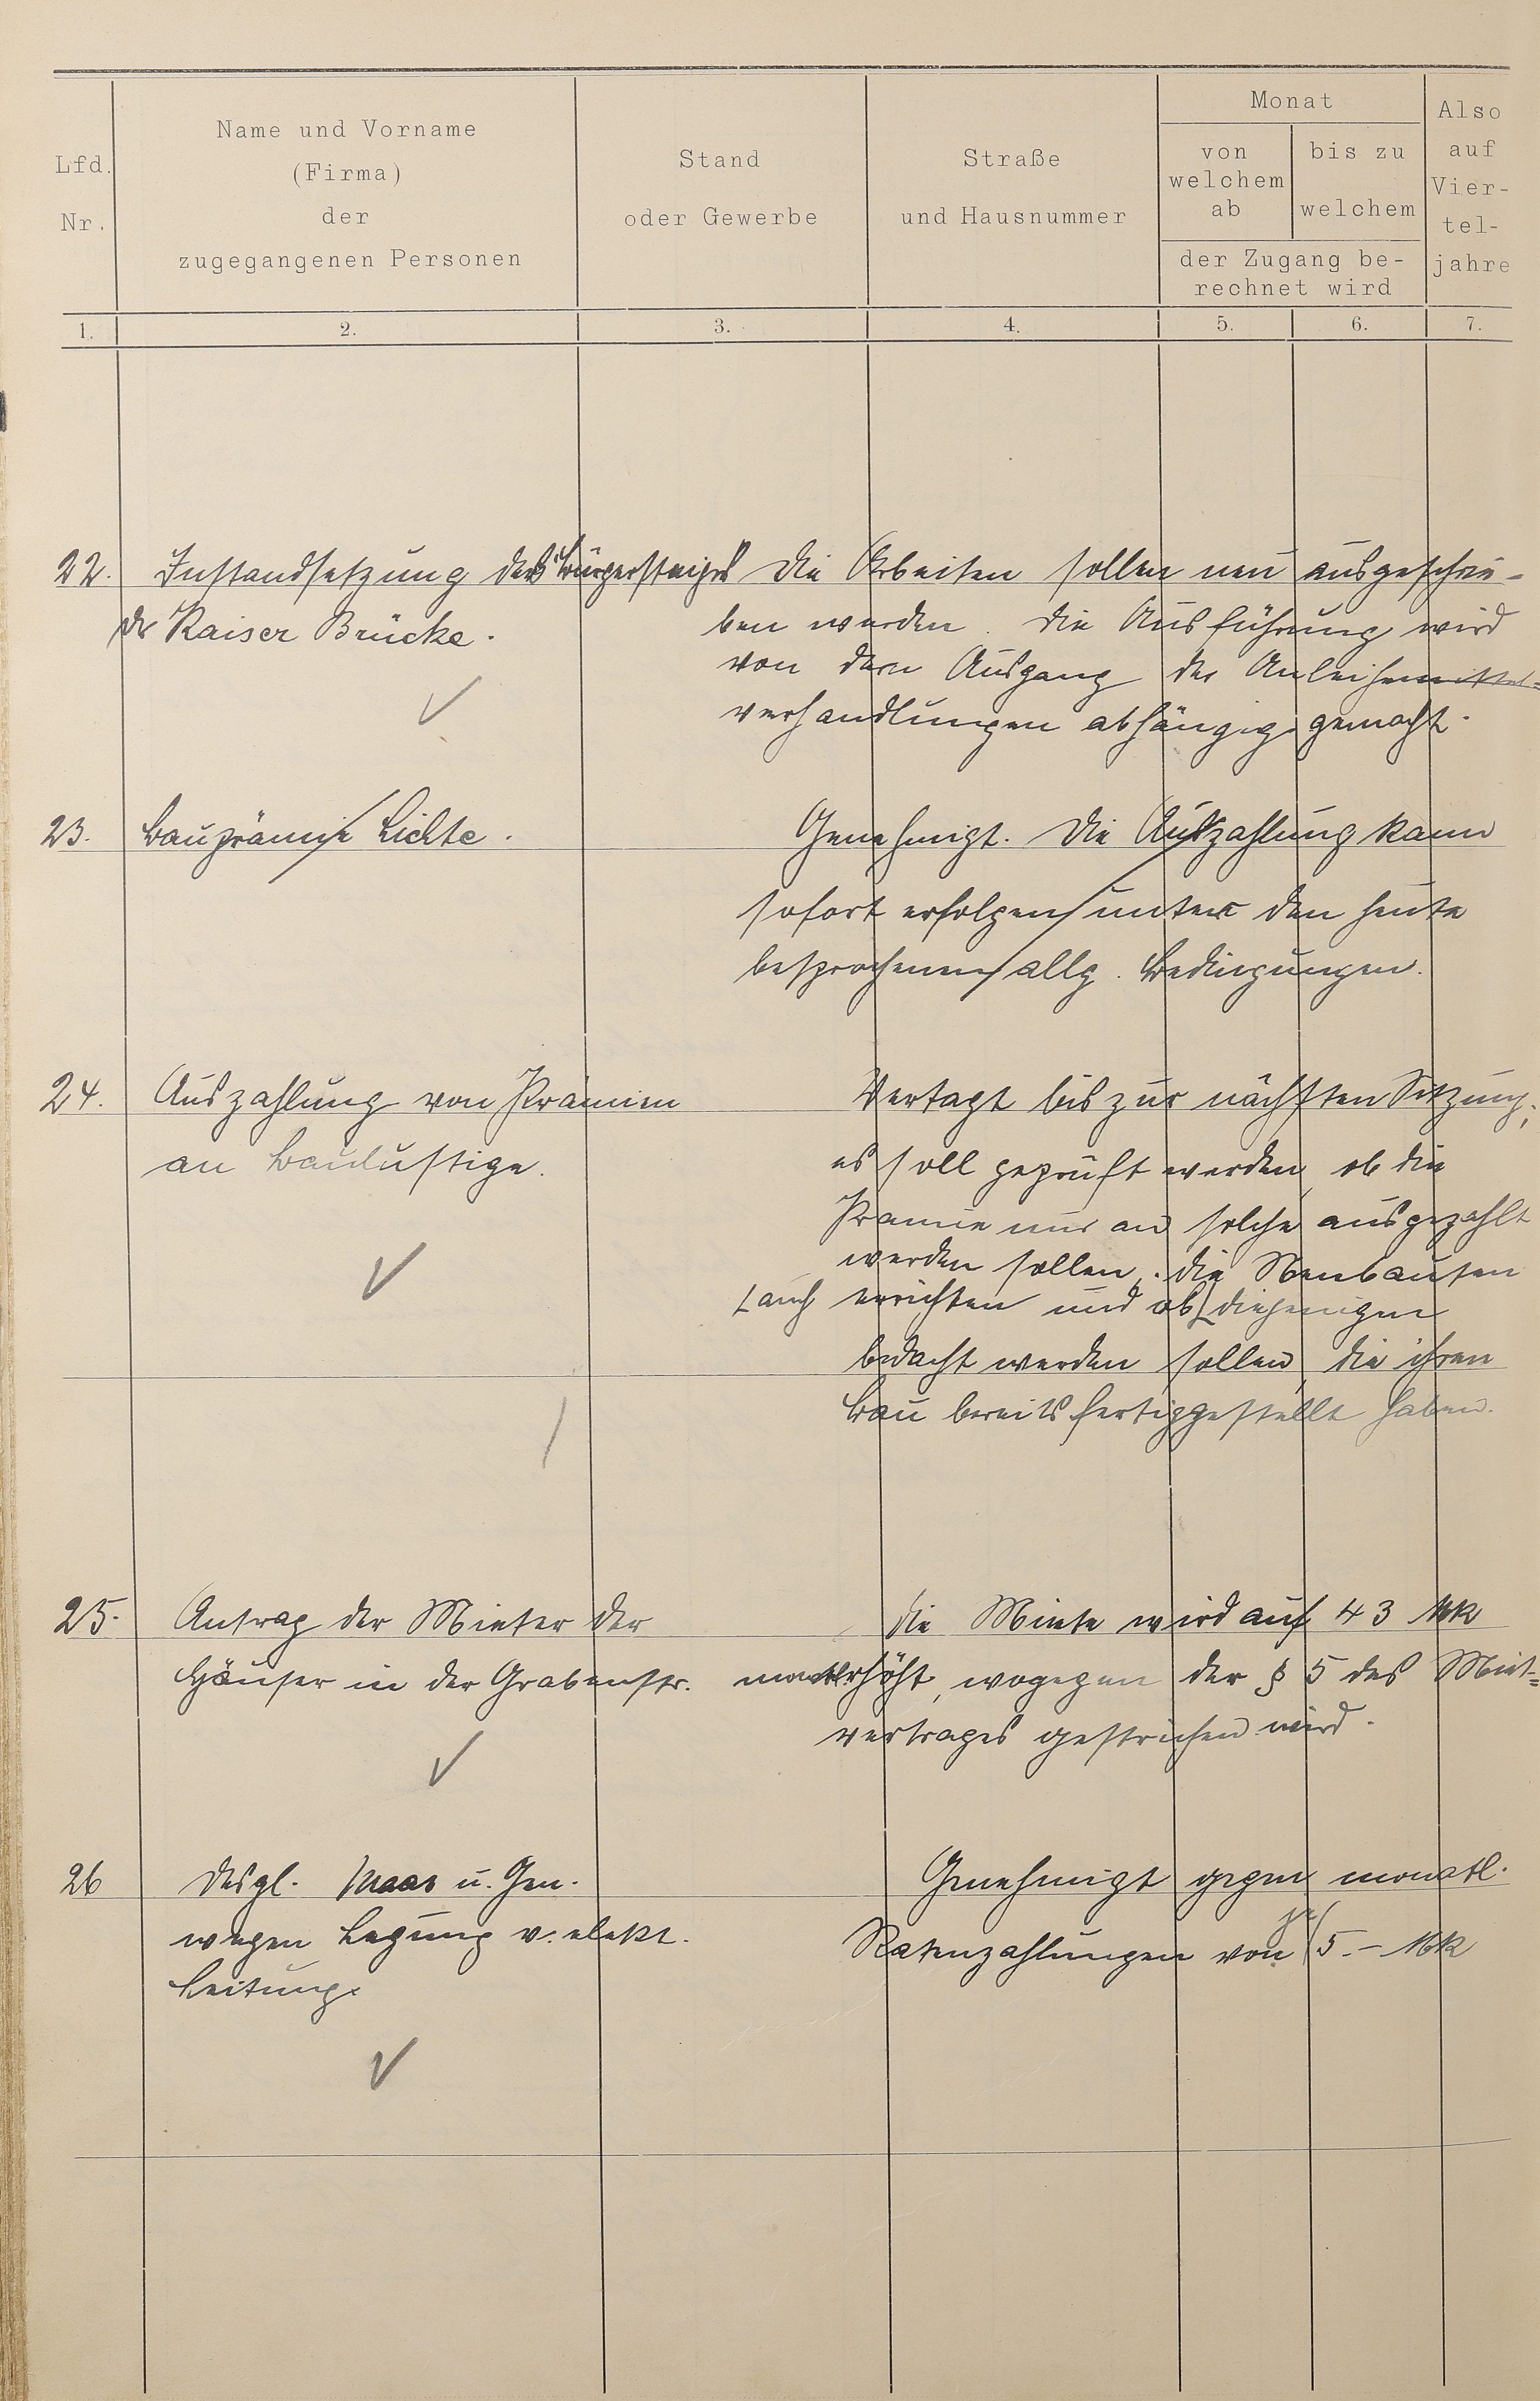 Lfd.
Nr.
Name und Vorname
(Firma)
der
zugegangenen Personen
Stand
oder Gewerbe
Straße
und Hausnummer
Monat
von
welchem
ab
bis zu
welchem
der Zugang be-
rechnet wird
Also
auf
Vier-
tel-
jahre
1. 2. 3. 4. 5. 6. 7.
22. Instandsetzung des Bürgersteiges
der Kaiser Brücke.
Die Arbeiten sollen neu ausgeschrie-
ben werden. Die Ausführung wird
von dem Ausgang der Anleihemittel=
verhandlungen abhängig gemacht.
23. Bauprämie Lichte.
Genehmigt. Die Auszahlung kann
sofort erfolgen unter den heute
besprochenen allg. Bedingungen.
24. Auszahlung von Prämien
an Baulustige.
Vertagt bis zur nächsten Sitzung;
es soll geprüft werden, ob die
Prämie nur an solche ausgezahlt
werden sollen, die Neubauten
errichten und ob auch diejenigen
bedacht werden sollen, die ihren
Bau bereits fertiggestellt haben.
25. Antrag der Mieter der
Häuser in der Grabenstr.
Die Miete wird auf 43 Mk
monatl. erhöht, wogegen der § 5 des Miet=
vertrages gestrichen wird.
26 Desgl. Maas u. Gen.
wegen Legung v. elektr.
Leitung.
Genehmigt gegen monatl.
Ratenzahlungen von je 5.- Mk